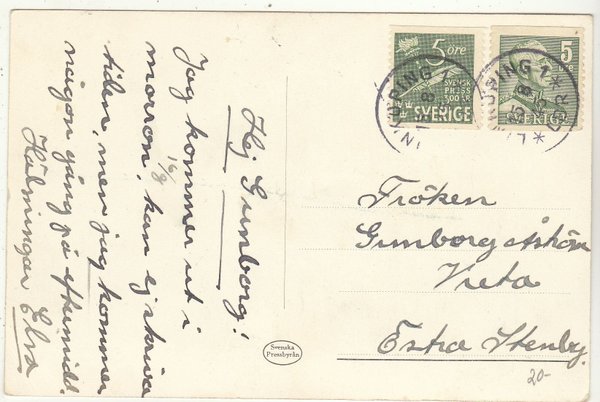 Hej Gunborg!
Jag kommer ut i
morron, kan ej skriva
16/8
tiden, men jag kommer
någon gång på eftermidd.
Hälsningar Elsa
5 ÖRE
SVENSK
PRESS
300 ÅR
SVERIGE
5
ÖRE
SVERIGE
LINKÖPING 1
Fröken
Gunborg
Vreta
Östra Stenby
Svenska
Pressbyrån
20-